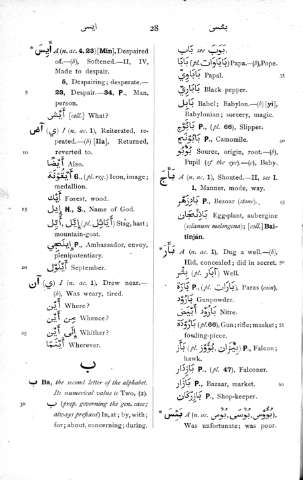 ايس
28
بئس
أَيِسَ A (n. ac. 4. 23) [Min], Despaired
of.—(b), Softened.—II, IV,
Made to despair.
5, Despairing; desperate.—
23, Despair.—34, P., Man,
person.
أَيْش [coll.] What?
آضَ (ي) I (n. ac. 1), Reiterated, re-
peated.—(b) [Ila], Returned,
reverted to.
أَيْضًا Also.
أَيْقُونَة G., (pl. reg.) Icon, image;
medallion.
أَيْك Forest, wood.
إِيل H., S., Name of God.
إِيَّل, أُيَّل (pl. أَيَائِل) Stag, hart;
mountain-goat.
P., Ambassador, envoy,
plenipotentiary.
أَيْلُول September.
آنَ (ي) I (n. ac. 1), Drew near.—
(b), Was weary, tired.
أَيْنَ Where?
مِنْ أَيْنَ Whence?
إِلَى أَيْنَ Whither?
أَيْنَمَا Wherever.
ب
ب Ba, the second letter of the alphabet.
Its numerical value is Two, (2).
بِ (prep. governing the gen. case;
always prefixed) In, at; by, with;
for; about, concerning; during.
بَاب see بَوَّبَ.
بَابَا (pl. بَابَاوَات) Papa.—(b), Pope.
بَابَاوِيّ Papal.
بَابَارِي Black pepper.
بَابِل Babel; Babylon.—(b) [yi],
Babylonian; sorcery, magic.
بَابُوج P., (pl. 66), Slipper.
بَابُونَج P., Camomile.
بُؤْبُؤ Source, origin, root.—(b),
Pupil (of the eye).—(c), Baby.
بَأَجَ A (n. ac. 1), Shouted.—II, see I.
1, Manner, mode, way.
بَادِزَهْر P., Bezoar (stone).
بَاذِنْجَان Eggplant, aubergine
(solanum melongena); [coll.] Bai-
tinjān.
بَأَرَ A (n. ac. 1), Dug a well.—(b),
Hid, concealed; did in secret.
بِئْر (pl. آبَار) Well.
بَارَة P., (pl. بَارَات), Paras (coin).
بَارُود Gunpowder.
بَارُود أَبْيَض Nitre.
بَارُودَة (pl. 66), Gun; rifle; musket;
fowling-piece.
بَاز (pl. بِيزَان, بُؤُوز) P., Falcon;
hawk.
بَازْدَار P., (pl. 47), Falconer.
بَازَار P., Bazaar, market.
بَازَرْكَان P., Shop-keeper.
بَئِسَ A (n. ac. بُؤْس, بُؤُوس),
Was unfortunate; was poor.